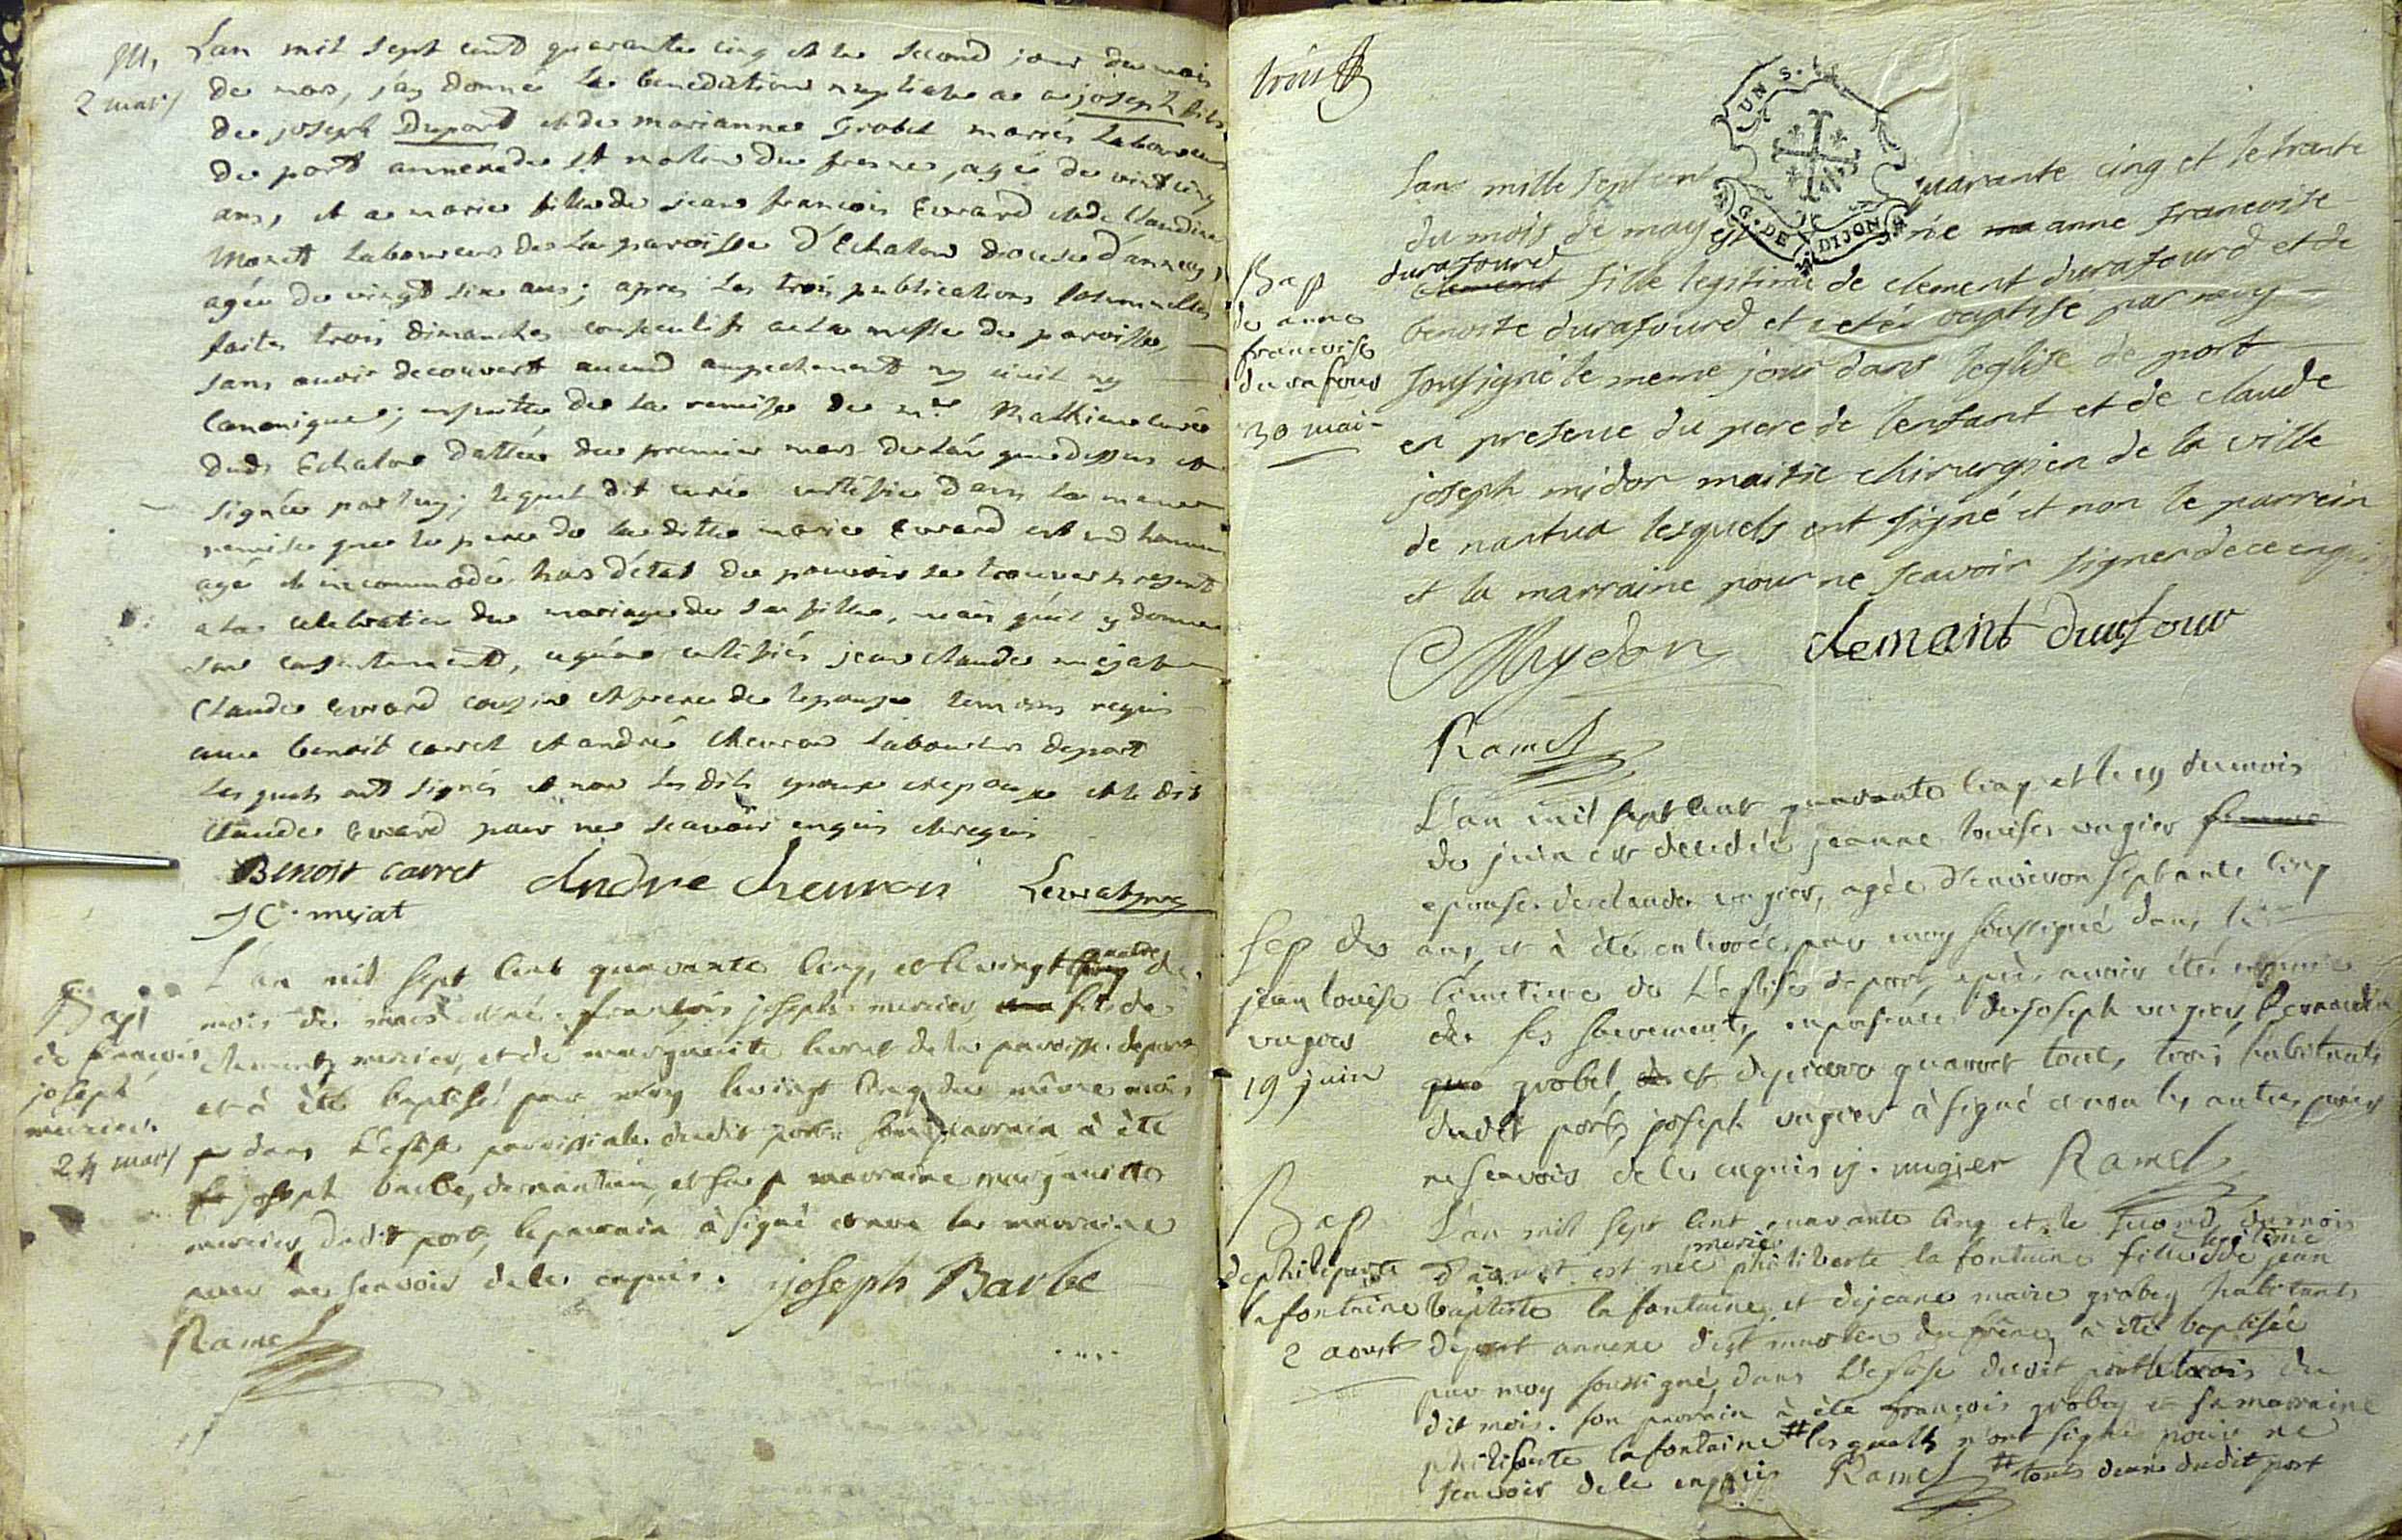 M,
2 mars
L'an mil sept cent quarante cinq et le second jour du mois
de mars, j'ay donné la benediction nuptiale a joseph fils
de joseph Duport et de marianne Grobet mariés laboureurs
de port annexe de st martin du fresne, agé de vint cinq
ans, et a marie fille de jean francois Evrard et de Claudine
Monet laboureurs de la paroisse d'Echalon diocese d'annecy,
agée de vingt six ans; apres les trois publications solemnelles
faites trois dimanches consecutifs a la messe de paroisse,
sans avoir decouvert aucun empechement ny civil ny
canonique; ensuitte de la remise de mre Mathieu curé
dudt Echalon dattée du premier mars de l'an que dessus et
signée par luy; lequel dit curé certifie dans la meme
remise que le pere de la ditte marie Evrard est un homme
agé et incommodé hors d'état de pouvoir se trouver present
a la celebration du mariage de sa fille, mais qu'il y donne
son consentement, ce qu'ont certifiés jean claude mejat
Claude Evrard cousin et frere de l'epouse temoins requis
avec benoit carret et andré Chevron laboureurs de port
lesquels ont signés et non les dits epoux et epouse et le dit
Claude Evrard pour ne scavoir enquis et requis
Benoit carret Andre chevron Levrat
JC. mejat
Bap
de francois
joseph
mercier
24 mars
L'an mil sept cent quarante cinq, et le vingt quatre du
mois de mars est né francois joseph mercier fils de
clement mercier, et de marguerite de la paroisse de port
et à été baptisé par moy le vingt cinq du même mois
dans L'eglise paroissiale dudit port son parrain à été
joseph barbe, de nantua, et sa marraine marguerite
mercier, dudit port, le parrain à signé et non la marraine
pour ne scavoir de ce enquis. joseph Barbe
Ramel
trois
UN S.
G. DE DIJON
L'an mille sept cent quarante cinq et le trante
du mois de may est née anne francoise
durafourd
fille legitime de clement durafourd et de
benoite durafourd et a eté baptisé par moy
sousigné le meme jour dans leglise de port
en presence du pere de lenfant et de claude
joseph midor maitre chirurgien de la ville
de nantua lesquels ont signé et non le parrein
et la marraine pour ne scavoir signer de ce enquis
Bap
de anne
francoise
durafour
30 mai
Mydon clemant durafour
Ramel
L'an mil sept cent quarante cinq et le 19 du mois
de juin est decedée jeanne louise vugier
epouse de claude vugier, agée d'environ septante cinq
ans, et à été enterrée par moy soussigné dans le
cimetiere de L'eglise de port, après avoir été munie
de ses sacrements, en presence de joseph vugier, bernardin
grobel, et de pierre quarret tous trois habitants
dudit port, joseph vugier à signé et non les autres pour
ne scavoir de ce enquis j. vugier Ramel
Sep de
jean louise
vugier
19 juin
Bap
de philiberte
la fontaine
2 aoust
L'an mil sept cent quarante cinq et le second du mois
d'aoust est née marie philiberte la fontaine fille legitime de jean
baptiste la fontaine et de jeane marie grobey habitants
de port annexe de st martin du frêne, à été baptisée
par moy soussigné, dans L'eglise dudit port le trois du
dit mois. son parrain à été françois grobey et sa marraine
philiberte la fontaine # lesquels n'ont signé pour ne
scavoir de ce enquis Ramel # touts deux dudit port